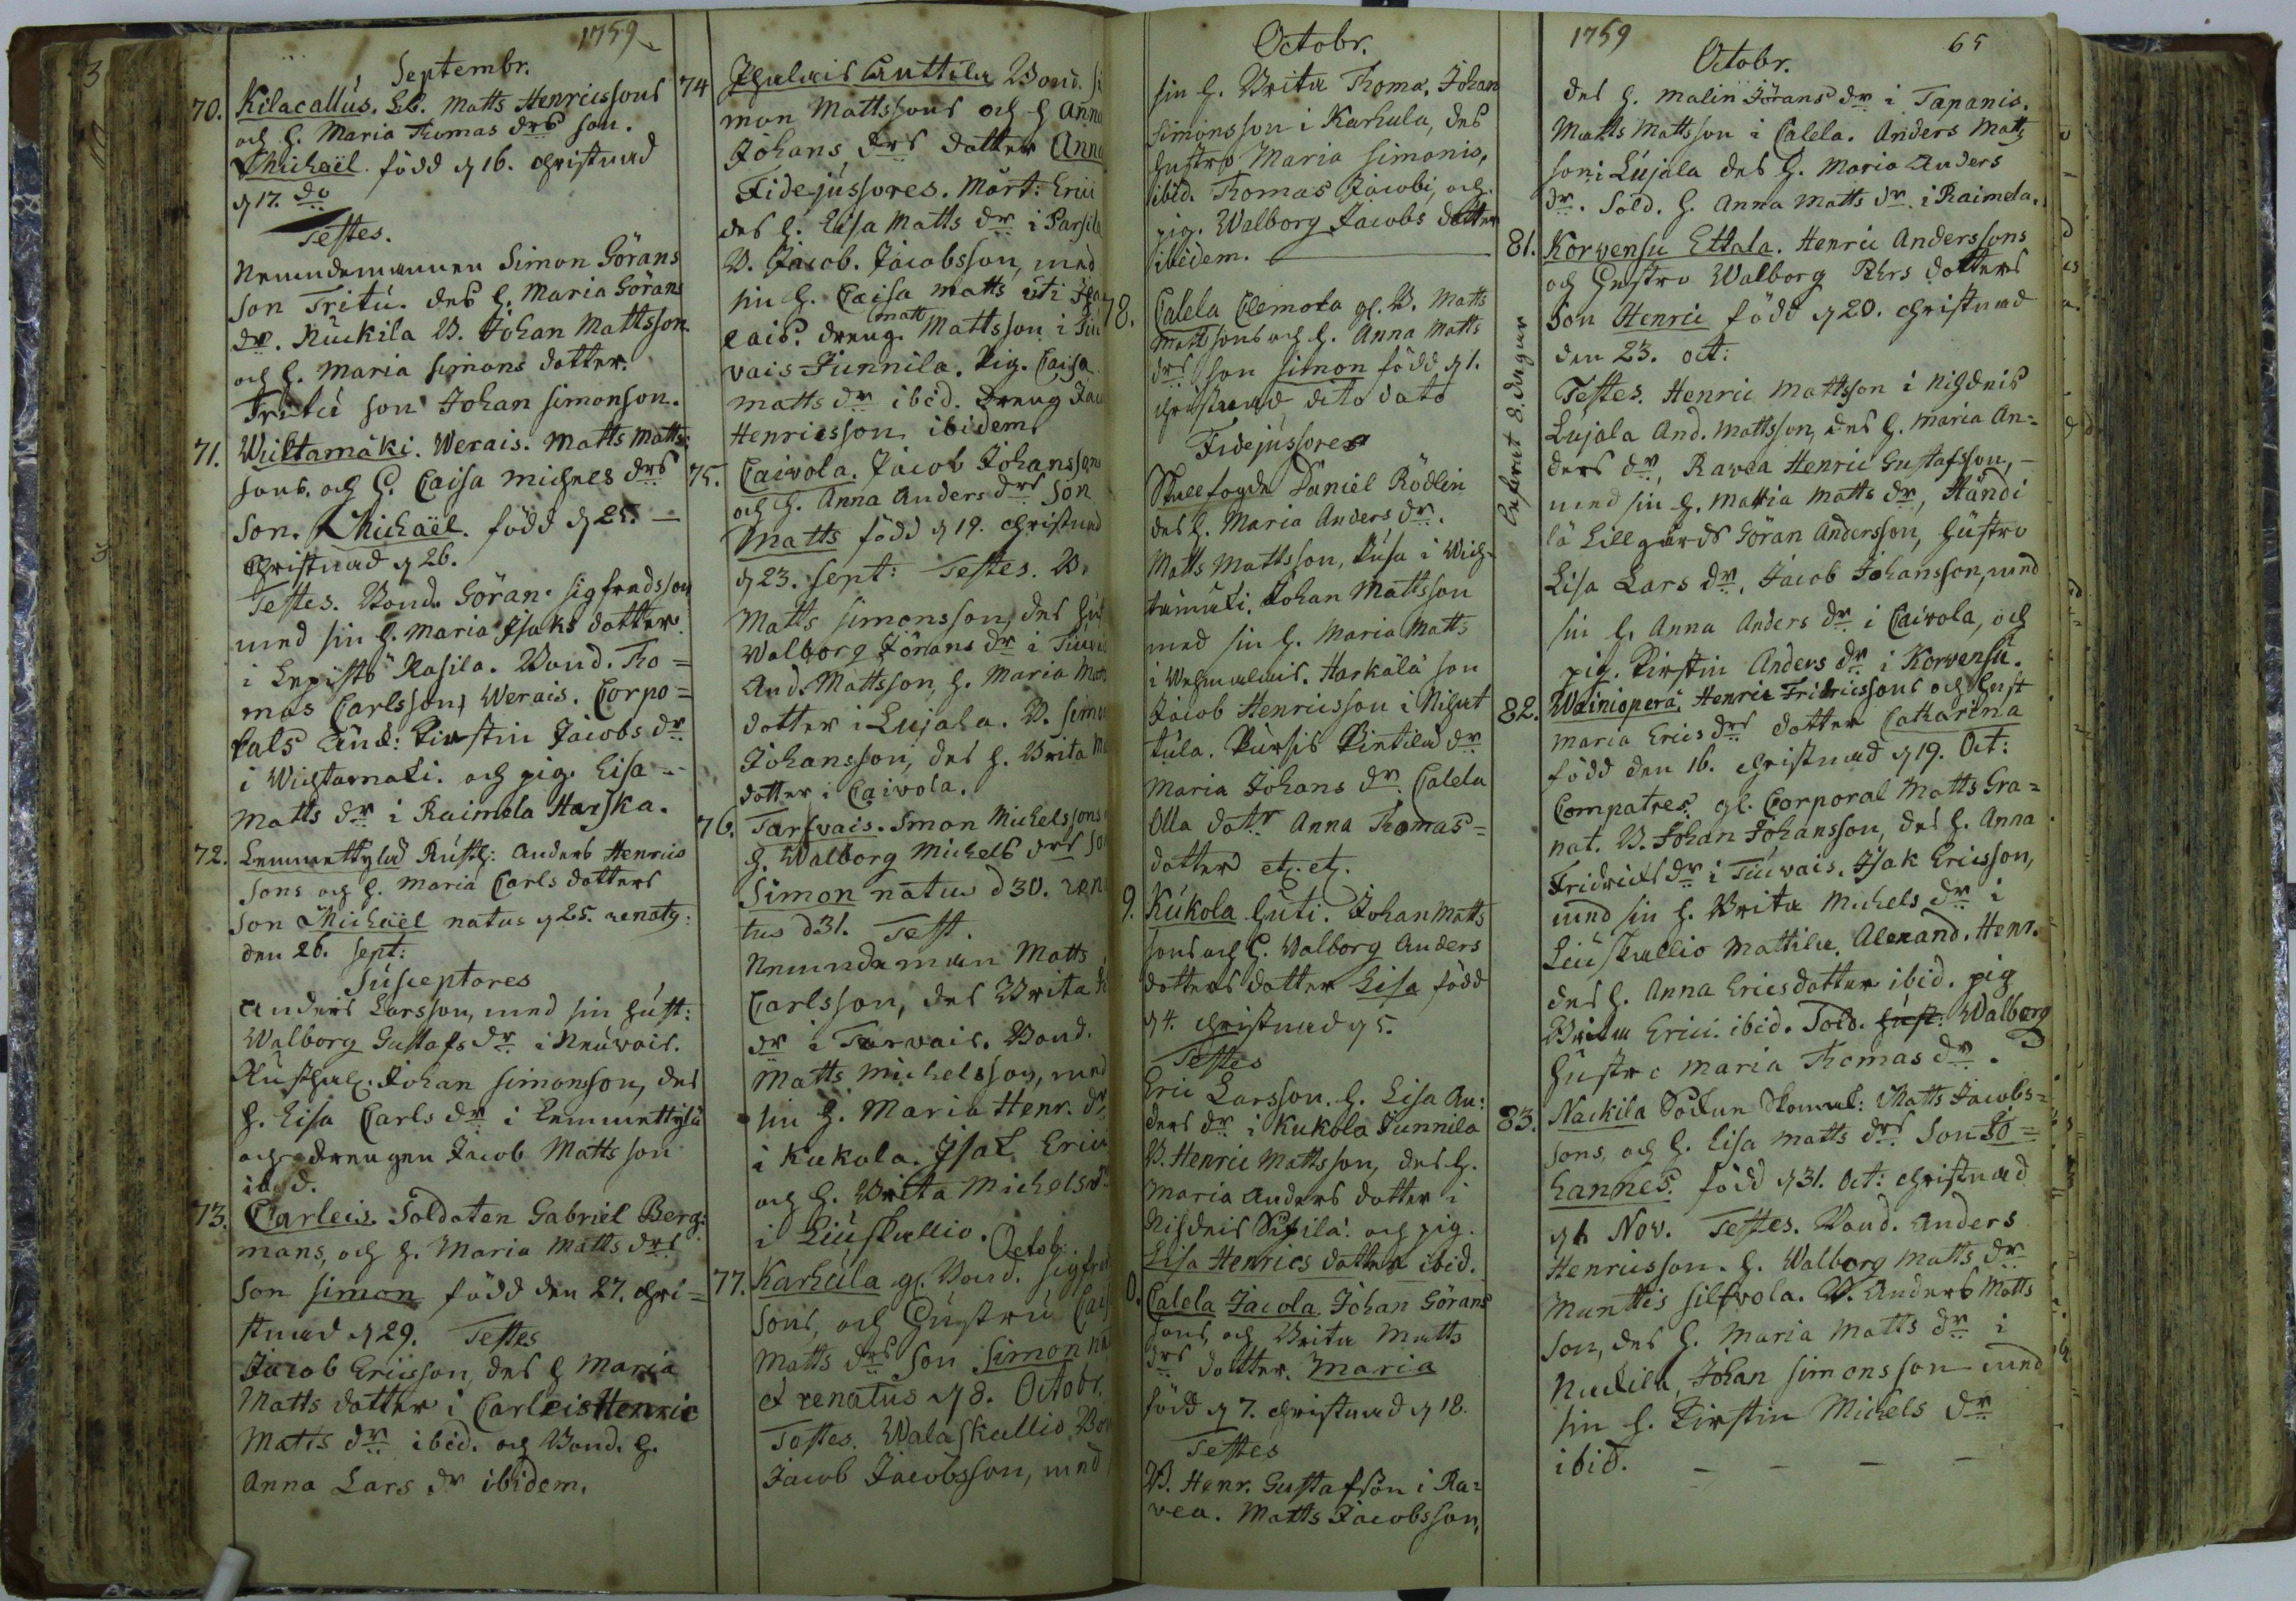 1759
Septembr.
70. Kilacallus. Lb. Matts Henricssons
och H. Maria Thomas drs son.
Michaël född d 16. christnad
d 17. do
Testes.
Nemndemannen Simon Görans
son Tritu. des H. Maria Görans
dr. Nuckila B. Johan Mattsson
och H. Maria Simons dotter.
Tritu son Johan Simonson.
71. Wichtamäki. Werais. Matts Matts
sons. och H. Caisa Michels drs
son. Michaël. född d 25. —
Christnad d 26.
Testes. Bond. Göran Sigfredsson
med sin H. Maria Isaks dotter
i Lepistö Rasila. Bond. Tho=
mas Carlsson, Werais. Corpo=
rals Änk: Kirstin Jacobs dr
i Wichtamäki. och pig. Lisa
Matts dr i Raimela Harska.
72. Lemmettylä Rusth: Anders Henrics
sons och H. Maria Carls dotters
son Michaël natus d 25. renatg:
den 26. Sept:
Susceptores
Anders Larsson, med sin Hust:
Walborg Gustafs dr i Neuvois.
Rusthal. Johan Simonsson, des
H. Lisa Carls dr i Lemmettylä
och drengen Jacob Mattsson
ibid.
73. Carleis. Soldaten Gabriel Berg:
mans, och H. Maria Matts drs
son Simon född den 27. chri=
stnad d 29. Testes
Jacob Ericsson, des H Maria
Matts dotter i Carleis Henric
Matts dr ibid. och Bond. H.
Anna Lars dr ibidem.
74 Ihalais Anttila Bond. Si
mon Mattssons och H Anna
Johans drs dotter Anna
Fidejussores. Mårt: Erici
des H. Lisa Matts dr i Parsila
B. Jacob Jacobsson, med
sin H. Caisa Matts uti Iha
lais. dreng. Matt Mattsson i Tiu
vais Junnila. Pig. Caisa
Matts dr ibid. Dreng Jac
Henricsson ibidem
75. Caivola. Jacob Johanssons
och H. Anna Anders drs Son
Matts född d 19. christnad
d 23. Sept: Testes. B.
Matts Simonsson, des Hust
Walborg Jörans dr i Tiuvais
And. Mattsson, H. Maria Matts
dotter i Lujala. B. Simon
Johansson, des H. Brita Ma
dotter i Caivola.
76. Tarfvais. Smon Michelssons
H. Walborg Michels drs son
Simon natus d 30. rena
tus d 31. Test.
Nemndeman Matts
Carlsson, des Brita
dr i Tarvais. Bond.
Matts Michelsson, med
sin H. Maria Henr. dr
i Kukola. Isak Erici
och H. Brita Michels dr
i Liuskallio.
Octob:
77. Karhula gl. Bond. Sigfred
sons, och Hustru Cais
Matts drs son Simon na
et renatus d 8. Octobr.
Testes. Walaskallio, Bon
Jacob Jacobsson, med
Octobr.
sin H. Brita Thomæ. Johan
Simonsson i Karhula, des
Hustro Maria Simonis,
ibid. Thomas Jacobi, och
pig. Walborg Jacobs dotter
ibidem.
78. Calela Clemola gl. B. Matts
Mattsons och H. Anna Matts
drs son Simon född d 1.
christnad dito dato
Fidejussores
Stallfogde Daniel Rödlin
des H. Maria Anders dr.
Matts Mattsson, Pusa i Wich=
tamäki. Johan Mattsson
med sin H. Maria Matts
i Wehmalais. Harkälä son
Jacob Henricsson i Nihat
tula. Pursis Pietilä dr
Maria Johans dr. Calela
Olla dotr Anna Thomas=
dotter etc. etc.
9. Kukola Huti. Johan Matts
sons och H. Walborg Anders
dotters dotter Lisa född
d 4. christnad d 5.
Testes
Eric Larsson. H. Lisa An:
ders dr i Kukola Junnila
B. Henric Mattsson, des H.
Maria Anders dotter i
Nisdeis Sifila. och pig.
Lisa Henrics dotter ibid.
0. Calela Jacola. Johan Görans
sons, och Brita Matts
drs dotter. Maria
född d 7. christnad d 18.
Testes
B. Henr. Gustafson i Ra=
vea. Matts Jacobsson,
1759
Octobr.
65
des H. Malin Jörans dr i Tapanis.
Matts Mattsson i Calela. Anders Matts
son i Lujala des H. Maria Anders
dr. Sold. H. Anna Matts dr i Raimela.
81. Korvensu Ettala. Henric Anderssons
och Hustro Walborg Pehrs dotters
Son Henric född d 20. christnad
den 23. oct:
Testes. Henric Mattsson i Nihdeis
Lujala And. Mattsson, des H. Maria An=
ders dr, Ravea Henric Gustafsson, —
med sin H. Maria Matts dr, Händi
lä Lillgårds Göran Andersson, Hustro
Lisa Lars dr. Jacob Johansson, med
sin H. Anna Anders dr i Caivola, och
pig. Kirstin Anders dr i Korvensu.
82. Wainiopera. Henric Fridricssons och Hust
Maria Erics drs dotter Catharina
född den 16. christnad d 19. Oct:
Compatres. gl. Corporal Matts Gra=
nat. B. Johan Johansson, des H. Anna
Fridricks dr i Tiuvais. Isak Ericsson,
med sin H. Brita Michels dr i
Liuskallio Mattila. Alexand. Henr.
des H. Anna Erics dotter ibid. pig
Brita Erici ibid. Sold. Hust: Walborg
Hustro Maria Thomas dr.
83. Nackila Matts Jacobs=
sons, och H. Lisa Matts drs Son Jo=
hannes. född d 31. Oct: christnad
d 1. Nov. Testes. Bond. Anders
Henricsson. H. Walborg Matts dr
Munttis Silfvola. B. Anders Matts
son, des H. Maria Matts dr i
Nackila, Johan Simonsson med
sin H. Kirstin Michels dr
ibid. — — — —